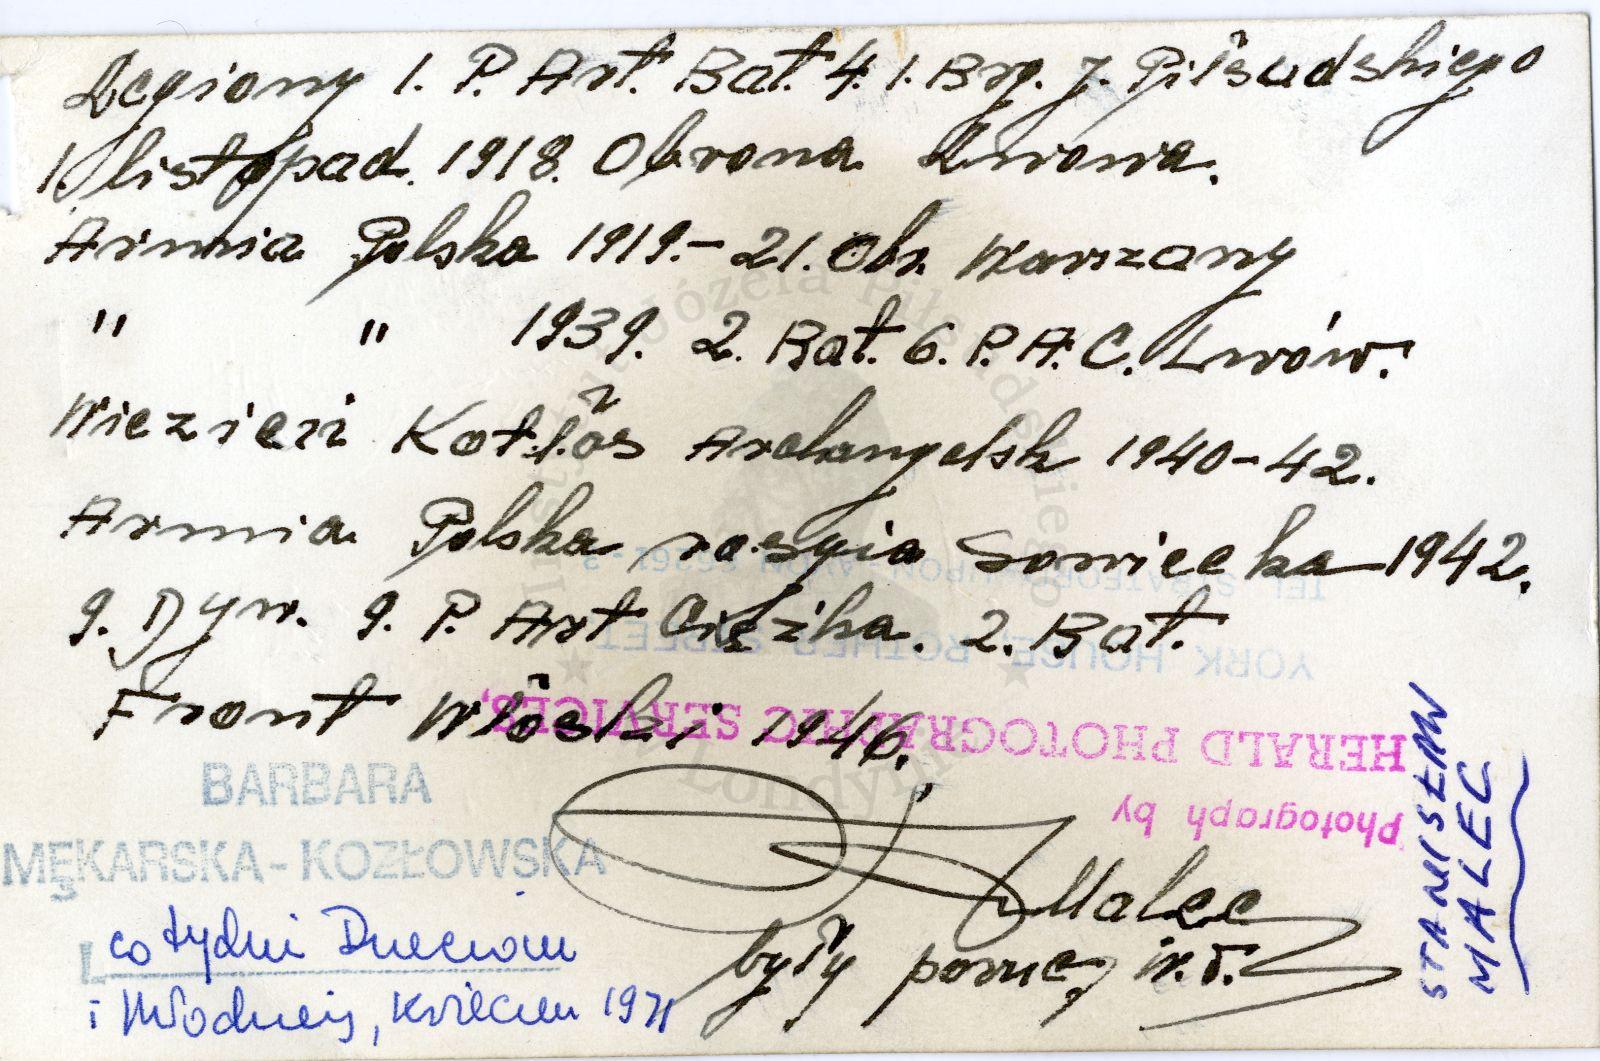 Legiony 1. P. Art. Bat. 4. 1. Brg. J. Piłsudskiego
1. listopad. 1918. Obrona Lwowa.
Armia Polska 1919.- 21. Obr. Warszawy
" " 1939. 2. Bat. 6. P. A. C. Lwów.
Wiezień Kotłas Archangelsk 1940-42.
Armia Polska rosyia Sowiecka 1942.
9. Dyw. 9. P. Art Ciężka. 2. Bat.
Front Włoski 1946.
Malec
były porucz
STANISŁAW
MALEC
BARBARA
MĘKARSKA-KOZŁOWSKA
co tydni Dzieciom
i Młodzieży, kwiecień 1971
Photograph by
HERALD PHOTOGRAPHIC SERVICES,
YORK HOUSE, ROTHER STREET
TEL STRATFORD-UPON-AVON
Instytut Józefa Piłsudskiego
Londyn